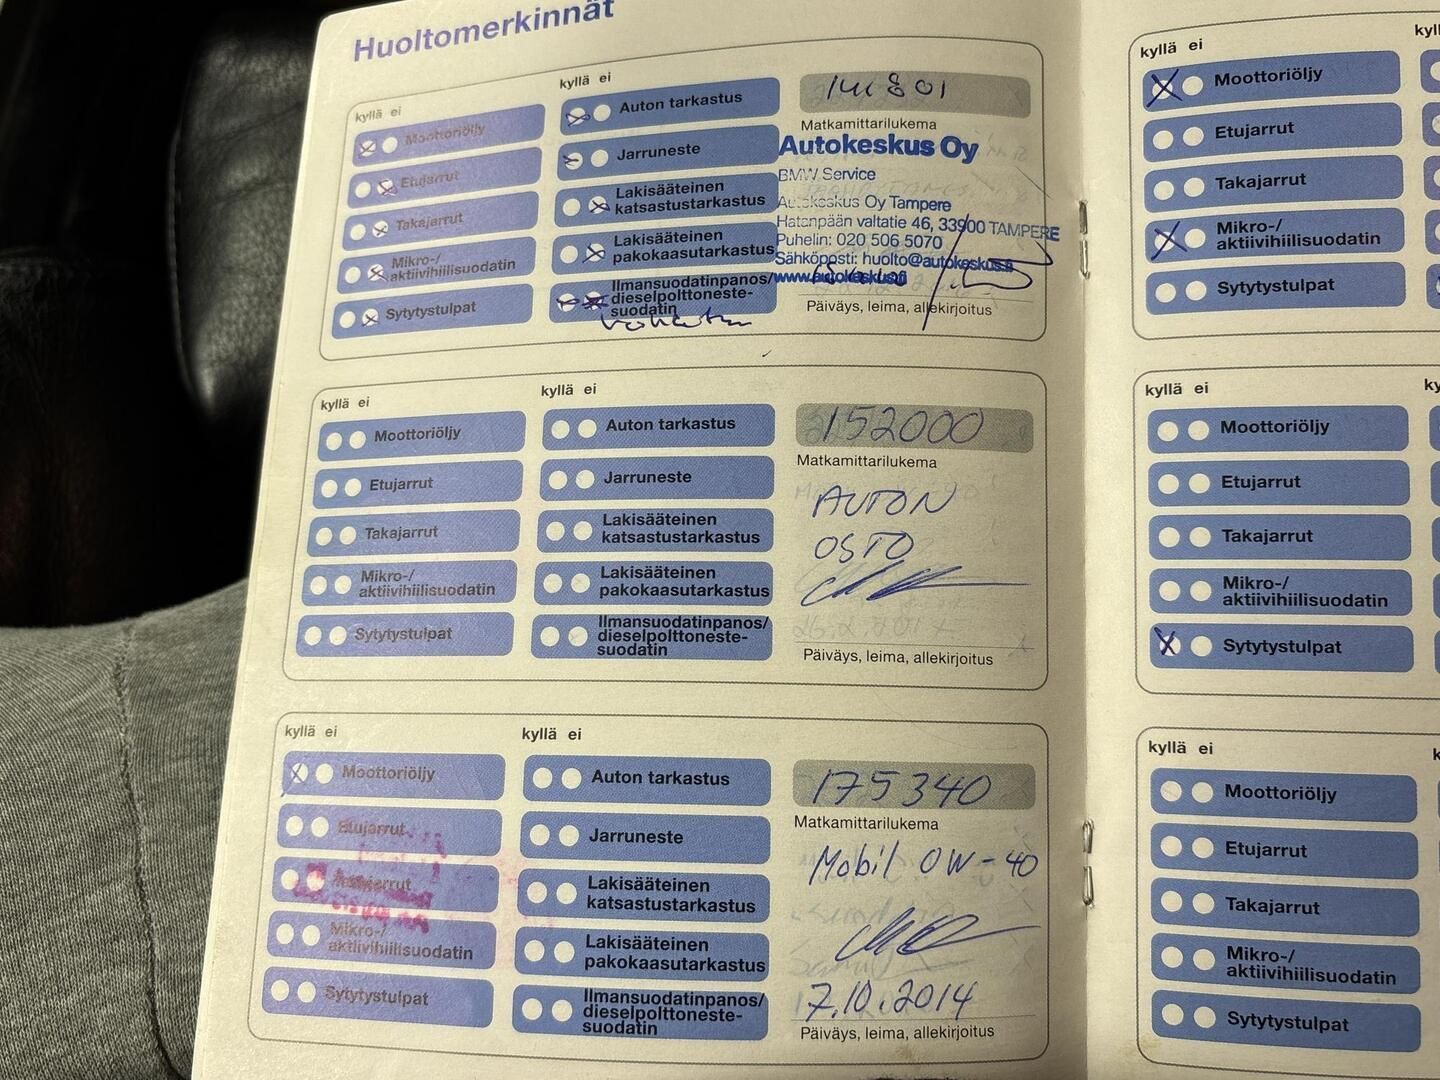 Huoltomerkinnät
kyllä ei
Moottoriöljy
Etujarrut
Takajarrut
Mikro-/
aktiivihiilisuodatin
Sytytystulpat
kyllä ei
Auton tarkastus
Jarruneste
Lakisääteinen
katsastustarkastus
Lakisääteinen
pakokaasutarkastus
Ilmansuodatinpanos/
dieselpolttoneste-
suodatin
141801
Matkamittarilukema
Autokeskus Oy
BMW Service
Autokeskus Oy Tampere
Hatanpään valtatie 46, 33900 TAMPERE
Puhelin: 020 506 5070
Sähköposti: huolto@autokeskus.fi
www.autokeskus.fi
Päiväys, leima, allekirjoitus
kyllä ei
Moottoriöljy
Etujarrut
Takajarrut
Mikro-/
aktiivihiilisuodatin
Sytytystulpat
kyllä ei
Auton tarkastus
Jarruneste
Lakisääteinen
katsastustarkastus
Lakisääteinen
pakokaasutarkastus
Ilmansuodatinpanos/
dieselpolttoneste-
suodatin
152000
Matkamittarilukema
AUTON
OSTO
Päiväys, leima, allekirjoitus
kyllä ei
Moottoriöljy
Etujarrut
Takajarrut
Mikro-/
aktiivihiilisuodatin
Sytytystulpat
kyllä ei
Auton tarkastus
Jarruneste
Lakisääteinen
katsastustarkastus
Lakisääteinen
pakokaasutarkastus
Ilmansuodatinpanos/
dieselpolttoneste-
suodatin
175340
Matkamittarilukema
Mobil 0W-40
7.10.2014
Päiväys, leima, allekirjoitus
kyllä ei
Moottoriöljy
Etujarrut
Takajarrut
Mikro-/
aktiivihiilisuodatin
Sytytystulpat
kyllä ei
Moottoriöljy
Etujarrut
Takajarrut
Mikro-/
aktiivihiilisuodatin
Sytytystulpat
kyllä ei
Moottoriöljy
Etujarrut
Takajarrut
Mikro-/
aktiivihiilisuodatin
Sytytystulpat